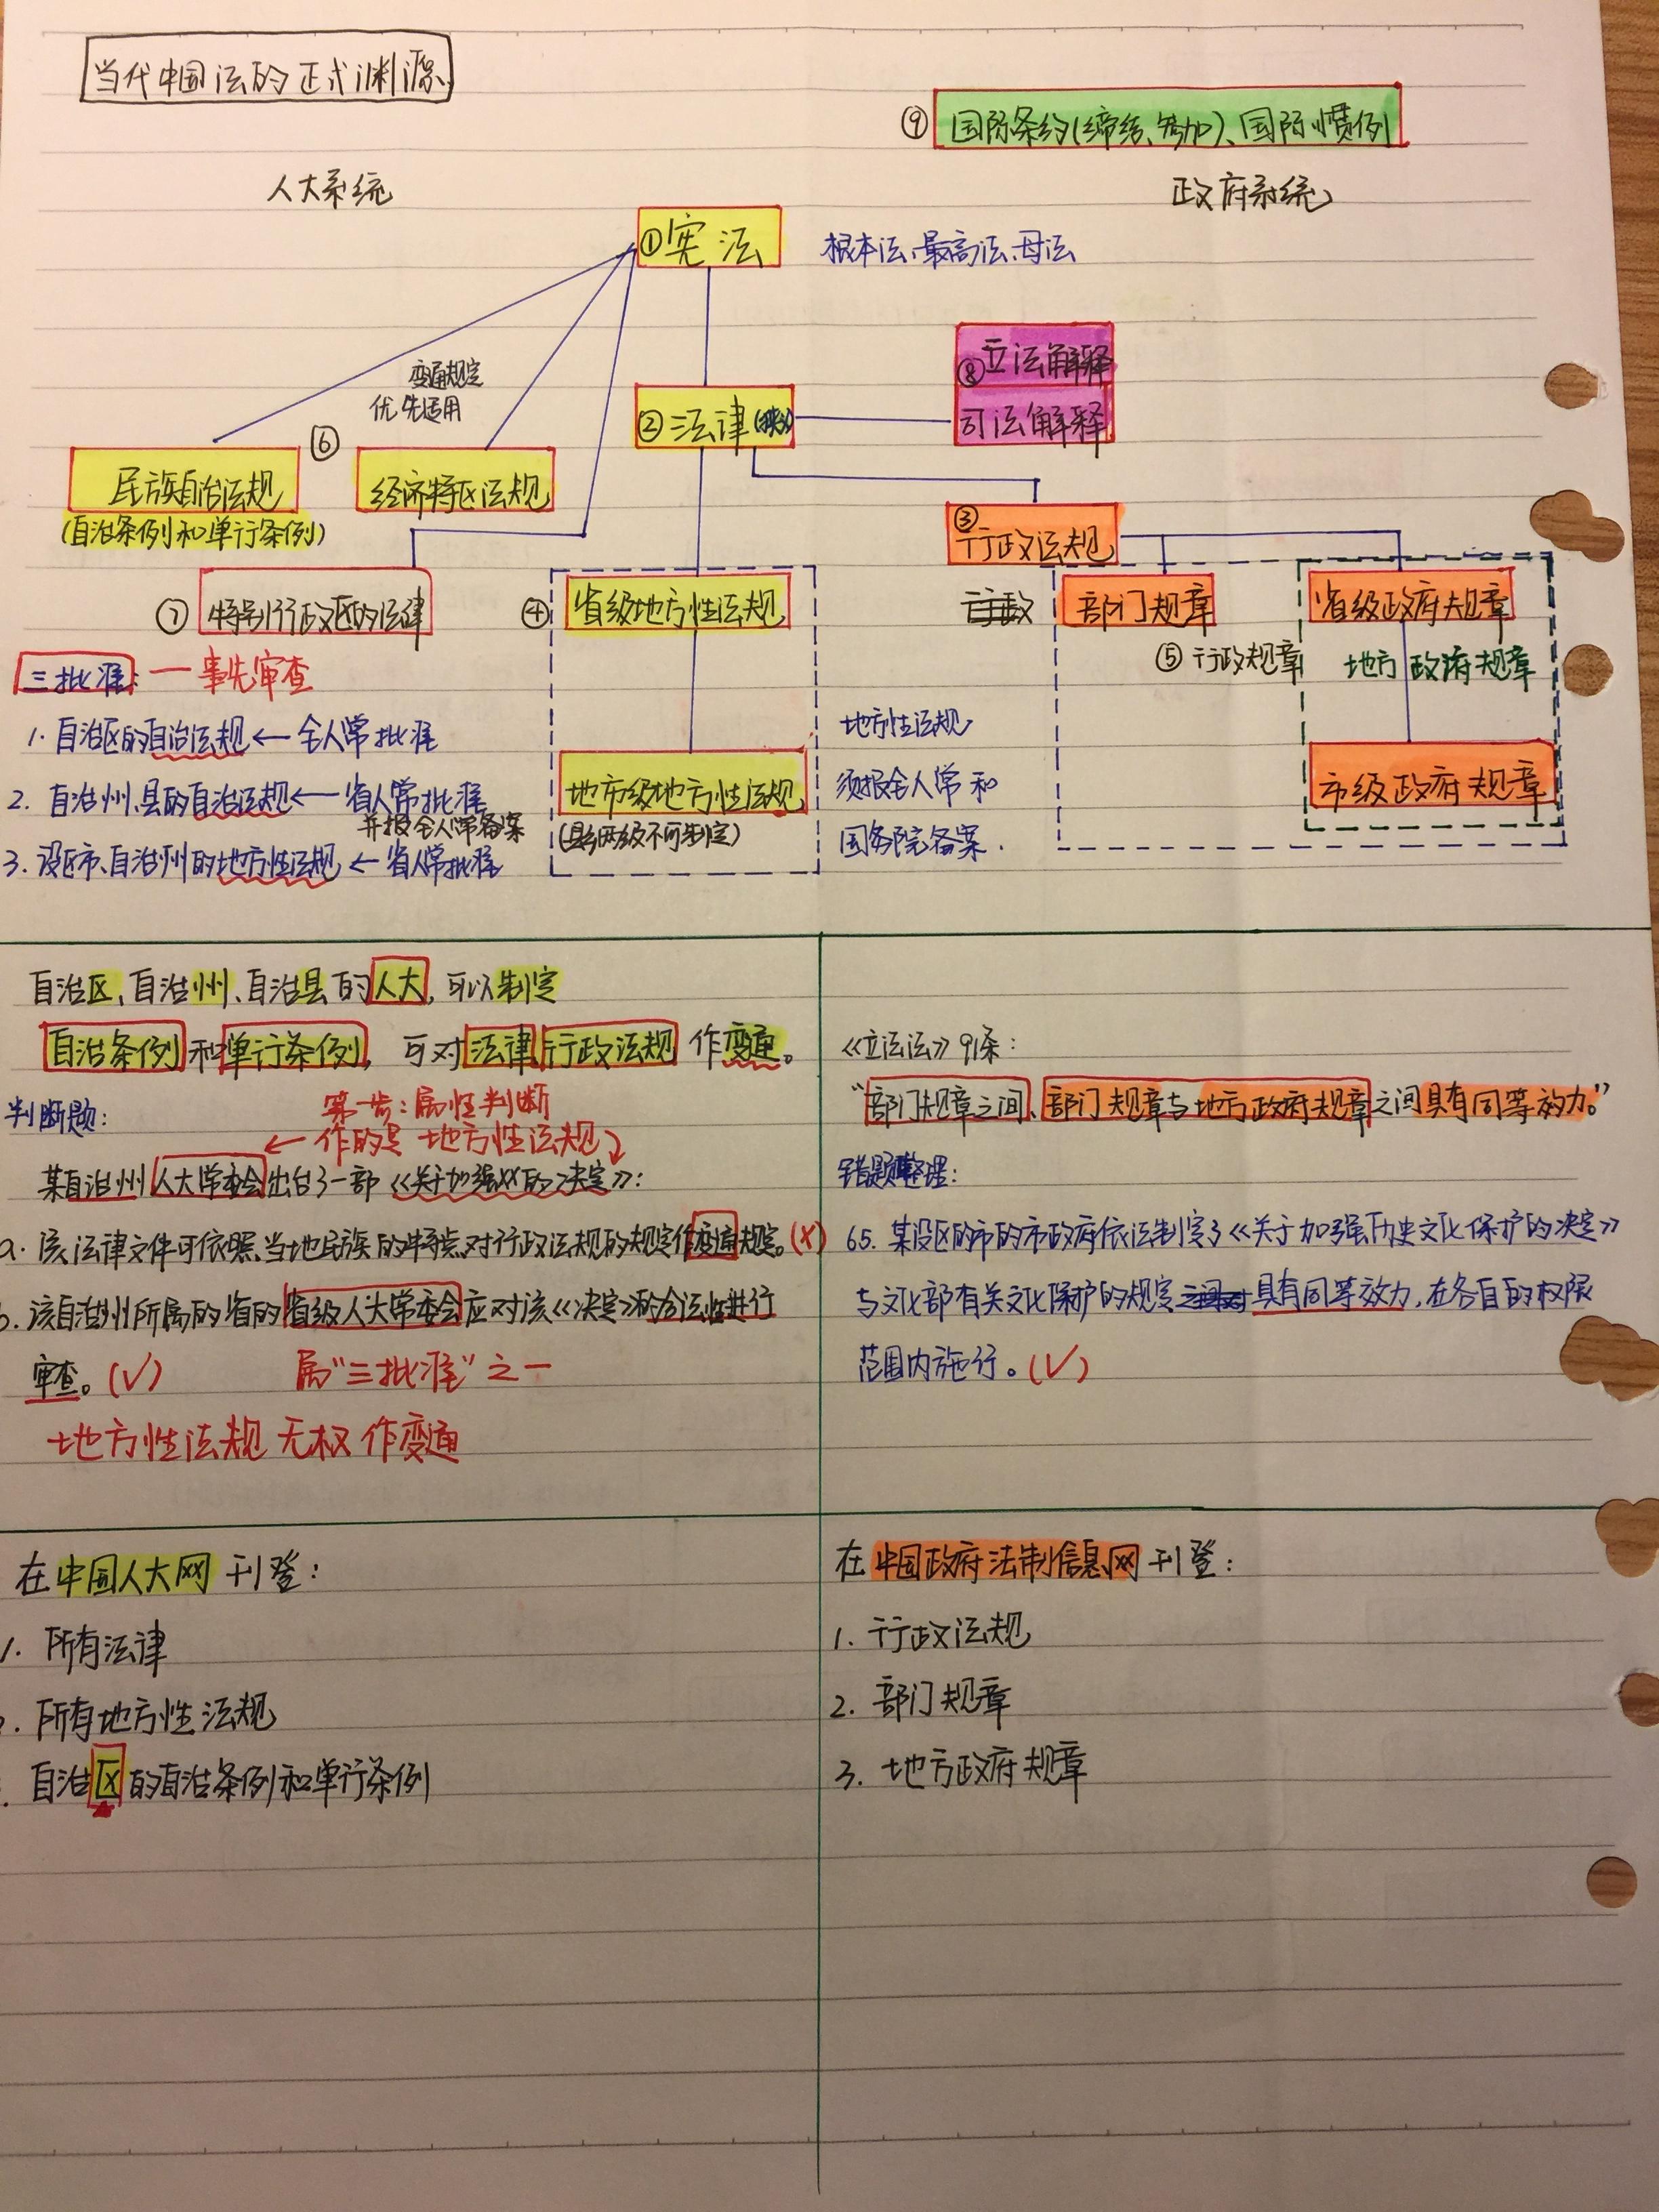 当代中国法的正式渊源
⑨ 国际条约(缔结、参加)、国际惯例
人大系统
政府系统
①宪法
根本法、最高法、母法
变通规定
优先适用
⑧立法解释
司法解释
②法律(狭义)
⑥
民族自治法规
(自治条例和单行条例)
经济特区法规
③
行政法规
⑦ 特别行政区的法律
④ 省级地方性法规
部门规章
省级政府规章
⑤行政规章
地方政府规章
三批准:一事先审查
1. 自治区的自治法规←全人常批准
2. 自治州、县的自治法规←省人常批准
并报全人常备案
3. 设区市、自治州的地方性法规←省人常批准
地市级地方性法规
(县乡两级不可制定)
地方性法规
须报全人常和
国务院备案.
市级政府规章
自治区、自治州、自治县的人大,可以制定
自治条例和单行条例,可对法律、行政法规作变通。
判断题:
第一步:属性判断
←作的是 地方性法规
某自治州人大常委会出台了一部《关于加强XX的决定》:
a. 该法律文件可依照当地民族的特点对行政法规的规定作变通规定。(X)
b. 该自治州所属的省的省级人大常委会应对该《决定》的合法性进行
审查。(√) 属“三批准”之一
地方性法规无权作变通
《立法法》91条:
“部门规章之间、部门规章与地方政府规章之间具有同等效力。”
错题整理:
65. 某设区的市的市政府依法制定了《关于加强历史文化保护的决定》
与文化部有关文化保护的规定具有同等效力,在各自的权限
范围内施行。(√)
在中国人大网刊登:
1. 所有法律
2. 所有地方性法规
. 自治区的自治条例和单行条例
在中国政府法制信息网刊登:
1. 行政法规
2. 部门规章
3. 地方政府规章